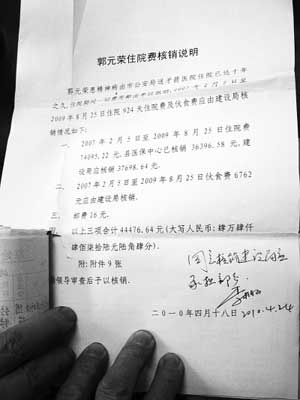 郭元荣住院费核销说明
郭元荣患精神病由市公安局送矛箭医院住院已达十年
之久,住院期间一切费用都由单位核销,2007年2月5日至
2009年8月25日住院924天住院费及伙食费应由建设局核
销情况如下:
一、 2007年2月5日至2009年8月25日住院费
74095.22元,县医保中心已核销36396.58元,建
设局应核销37698.64元。
二、 2007年2月5日至2009年8月25日伙食费6762
元应由建设局核销。
三、 邮费16元。
以上三项合计44476.64元(大写人民币:肆万肆仟
肆佰柒拾陆元陆角肆分)。
附:附件9张
领导审查后予以核销。
同意核销建设局应
承担部分
2010.4.24
二〇一〇年四月十八日